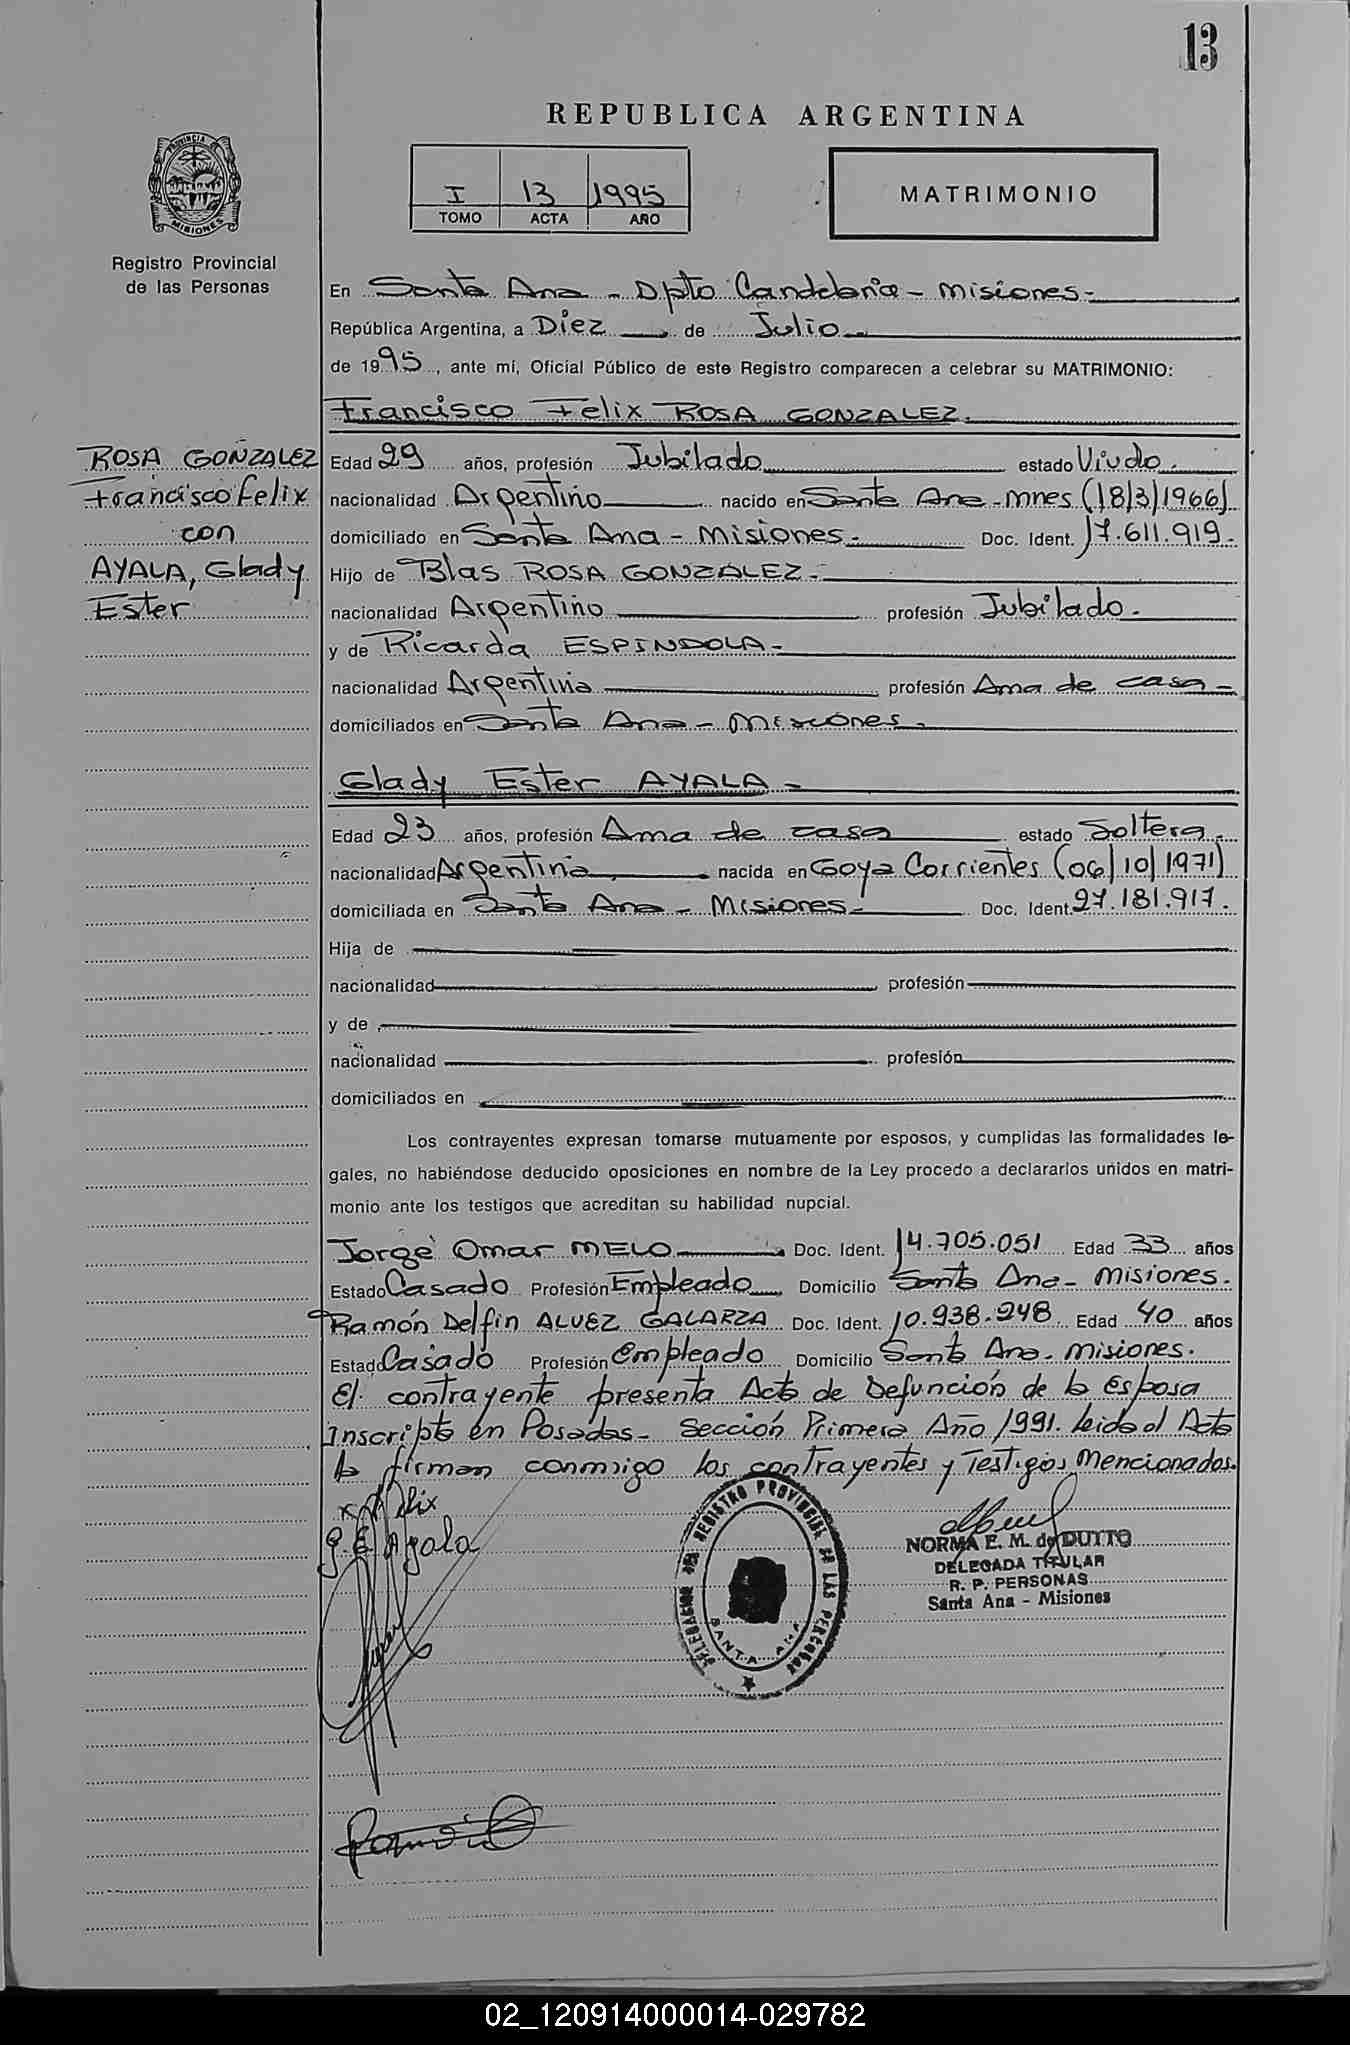 13
REPUBLICA ARGENTINA
I 13 1995
TOMO ACTA AÑO
MATRIMONIO
PROVINCIA DE MISIONES
Registro Provincial
de las Personas
En Santa Ana - Dpto Candelaria - Misiones.-
República Argentina, a Diez de Julio
de 1995, ante mí, Oficial Público de este Registro comparecen a celebrar su MATRIMONIO:
Francisco Felix ROSA GONZALEZ.
ROSA GONZALEZ
Francisco Felix
con
AYALA, Glady
Ester
Edad 29 años, profesión Jubilado estado Viudo.
nacionalidad Argentino nacido en Santa Ana - Mnes (18/3/1966)
domiciliado en Santa Ana - Misiones.- Doc. Ident. 17.611.919.-
Hijo de Blas ROSA GONZALEZ.-
nacionalidad Argentino profesión Jubilado.-
y de Ricarda ESPINDOLA.-
nacionalidad Argentina profesión Ama de casa -
domiciliados en Santa Ana - Misiones.-
Glady Ester AYALA -
Edad 23 años, profesión Ama de casa estado Soltera.-
nacionalidad Argentina nacida en Goya Corrientes (06/10/1971)
domiciliada en Santa Ana - Misiones.- Doc. Ident. 27.181.917.-
Hija de
nacionalidad profesión
y de
nacionalidad profesión
domiciliados en
Los contrayentes expresan tomarse mutuamente por esposos, y cumplidas las formalidades le-
gales, no habiéndose deducido oposiciones en nombre de la Ley procedo a declararlos unidos en matri-
monio ante los testigos que acreditan su habilidad nupcial.
Jorge Omar MELO Doc. Ident. 14.705.051 Edad 33 años
Estado Casado Profesión Empleado Domicilio Santa Ana - Misiones.
Ramón Delfin ALVEZ GALARZA Doc. Ident. 10.938.248 Edad 40 años
Estado Casado Profesión Empleado Domicilio Santa Ana - Misiones.
El contrayente presenta Acta de Defunción de la Esposa
Inscripta en Posadas - Sección Primera Año 1991. Leida el Acta
la firman conmigo los contrayentes y Testigos Mencionados.
Felix
G. E. Ayala
DELEGACION DEL REGISTRO PROVINCIAL DE LAS PERSONAS
SANTA ANA
NORMA E. M. de DUTTO
DELEGADA TITULAR
R. P. PERSONAS
Santa Ana - Misiones
02_120914000014-029782